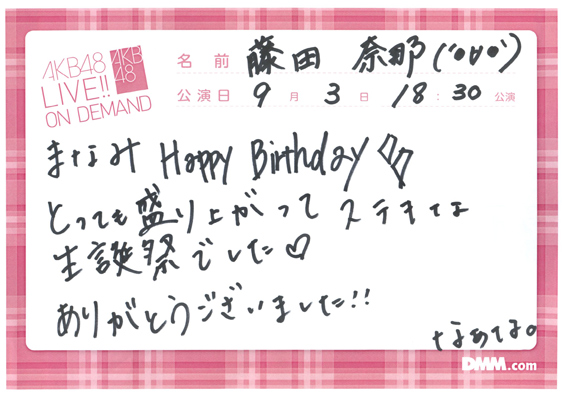 AKB48
LIVE!!
ON DEMAND
AKB
48
名前 藤田 奈那(*´∀`*)
公演日 9月3日 18:30公演
まなみ Happy Birthday
とっても盛り上がって ステキな
生誕祭でした♡
ありがとうございました!!
なぁな。
DMM.com